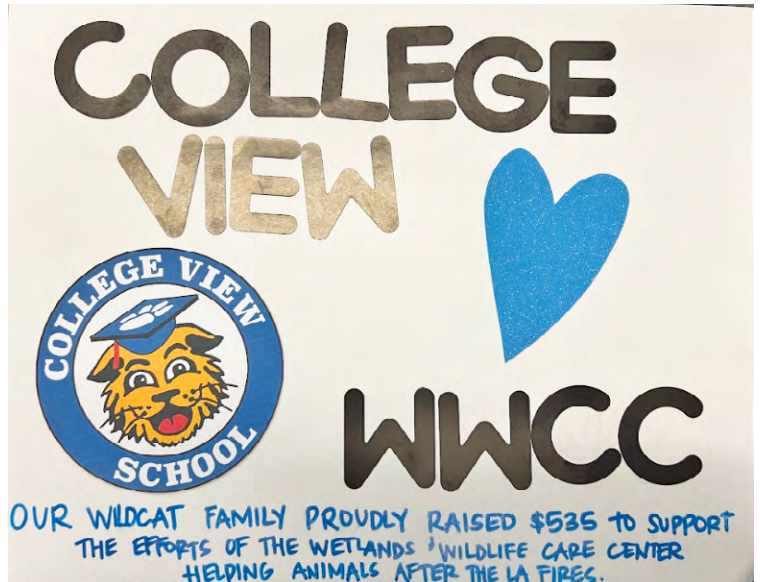 COLLEGE
VIEW
COLLEGE VIEW
SCHOOL
WWCC
OUR WILDCAT FAMILY PROUDLY RAISED $535 TO SUPPORT
THE EFFORTS OF THE WETLANDS & WILDLIFE CARE CENTER
HELPING ANIMALS AFTER THE LA FIRES.